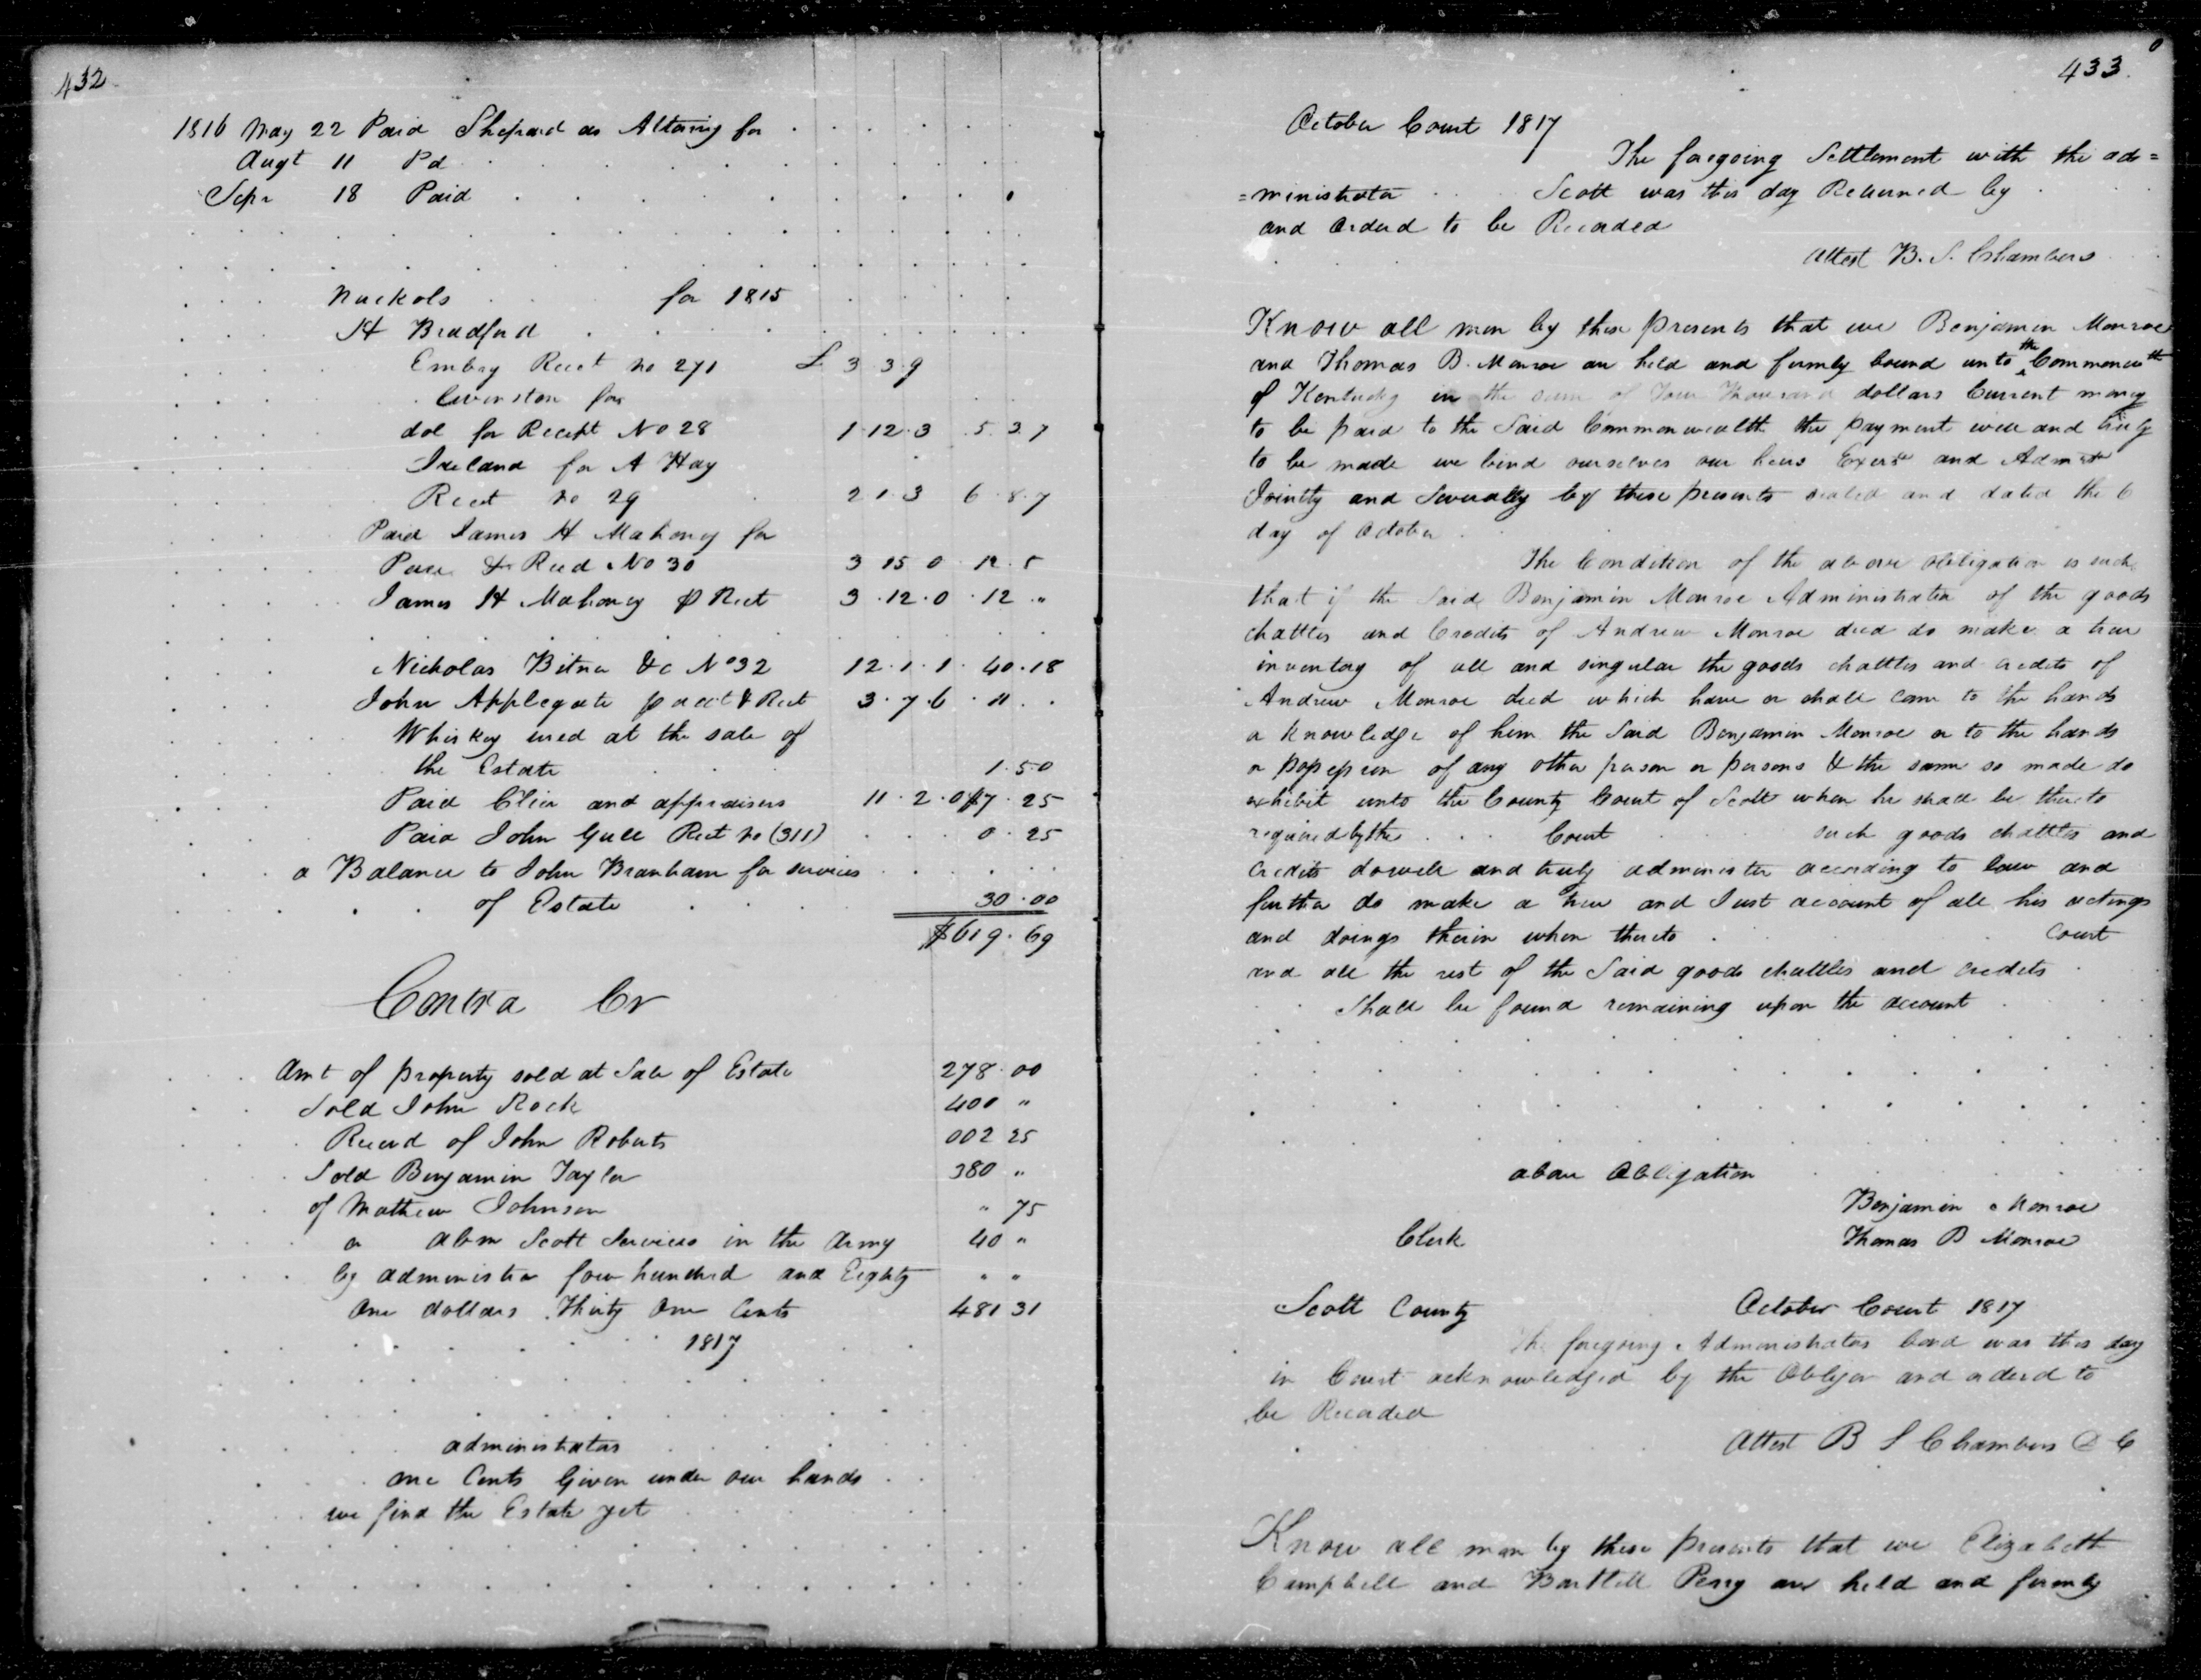 432
1816 May 22 Paid Shepard as Attorny for
Augt 11 Pd
Sepr 18 Paid
Nuckols for 1815
H Bradford
Embry Rect No 271 £ 3 3.9
for
dol for Recept No 28 1.12.3 5.37
Ireland for A Hay
Rect No 29 2 1.3 6.8.7
Paid James H Mahony for
& No 30 3 15 0 12.5
James H Mahony p Rect 3.12.0.12 "
Nicholas Bitner &c No 32 12.1.1. 40.18
John Applegate p acct & Rect 3.7.6.11
Whiskey used at the sale of
the Estate 1.50
Paid and appraisers 11.2.0 17.25
Paid John Gull Rect No (311) 0.25
a Balance to John Branham for services
of Estate 30.00
$619.69
Contra Cr
Amt of property sold at Sale of Estate 278.00
Sold John Rock 400 "
Recevd of John Roberts 002 25
Sold Benjamin Taylor 380 "
of Mathew Johnson " 75
a Abm Scott Services in the Army 40 "
by administer four hundred and Eighty " "
One dollars Thirty One Cents 481 31
1817
administrators
one Cents Given under our hands
we find the Estate yet
433
October Court 1817
The foregoing Settlement with the ad=
=ministrator Scott was this day Returned by
and Orderd to be Recorded
Attest B. S. Chambers
Know all men by these presents that we Benjamin Monroe
and Thomas B. Monroe are held and firmly bound unto the Commonwth
of Kentucky in the sum of Four Thousand dollars Current money
to be paid to the Said Commonwealth the payment well and truly
to be made we bind ourselves our heirs Exers and Admrs
Jointly and Severally by these presents sealed and dated the 6
day of October
The Condition of the above obligation is such
that if the Said Benjamin Monroe Administrator of the goods
chattles and Credits of Andrew Monroe decd do make a true
inventory of all and singular the goods chattles and credits of
Andrew Monroe decd which have or shall come to the hands
or knowledge of him the Said Benjamin Monroe or to the hands
or possession of any other person or persons & the same so made do
exhibit unto the County Court of Scott when he shall be thereto
required by the Court such goods chattles and
Credits do well and truly administer according to law and
further do make a true and Just account of all his actings
and doings therin when thereto Court
and all the rest of the Said goods chattles and credits
Shall be found remaining upon the account
above Obligation
Benjamin Monroe
Clerk Thomas B Monroe
Scott County October Court 1817
The foregoing Administrators bond was this day
in Court acknowledged by the Obligor and orderd to
be Recorded
Attest B S Chambers D C
Know all men by these presents that we Elizabeth
Campbell and Bartlett Perry are held and firmly